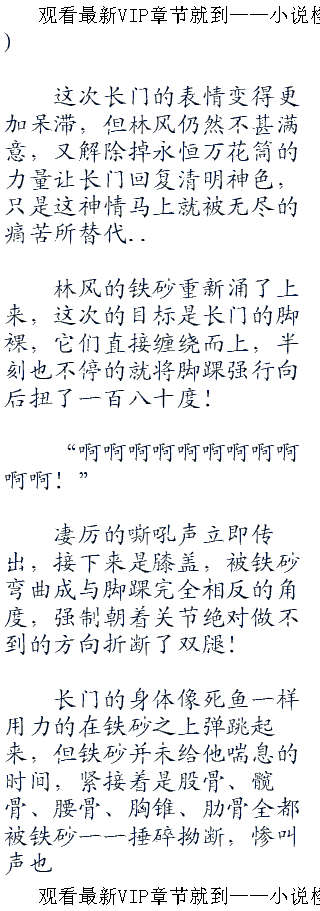 观看最新VIP章节就到——小说档
)
这次长门的表情变得更
加呆滞，但林风仍然不甚满
意，又解除掉永恒万花筒的
力量让长门回复清明神色，
只是这神情马上就被无尽的
痛苦所替代..
林风的铁砂重新涌了上
来，这次的目标是长门的脚
裸，它们直接缠绕而上，半
刻也不停的就将脚踝强行向
后扭了一百八十度！
“啊啊啊啊啊啊啊啊啊
啊啊！”
凄厉的嘶吼声立即传
出，接下来是膝盖，被铁砂
弯曲成与脚踝完全相反的角
度，强制朝着关节绝对做不
到的方向折断了双腿！
长门的身体像死鱼一样
用力的在铁砂之上弹跳起
来，但铁砂并未给他喘息的
时间，紧接着是股骨、髋
骨、腰骨、胸锥、肋骨全都
被铁砂一一捶碎拗断，惨叫
声也
观看最新VIP章节就到——小说档